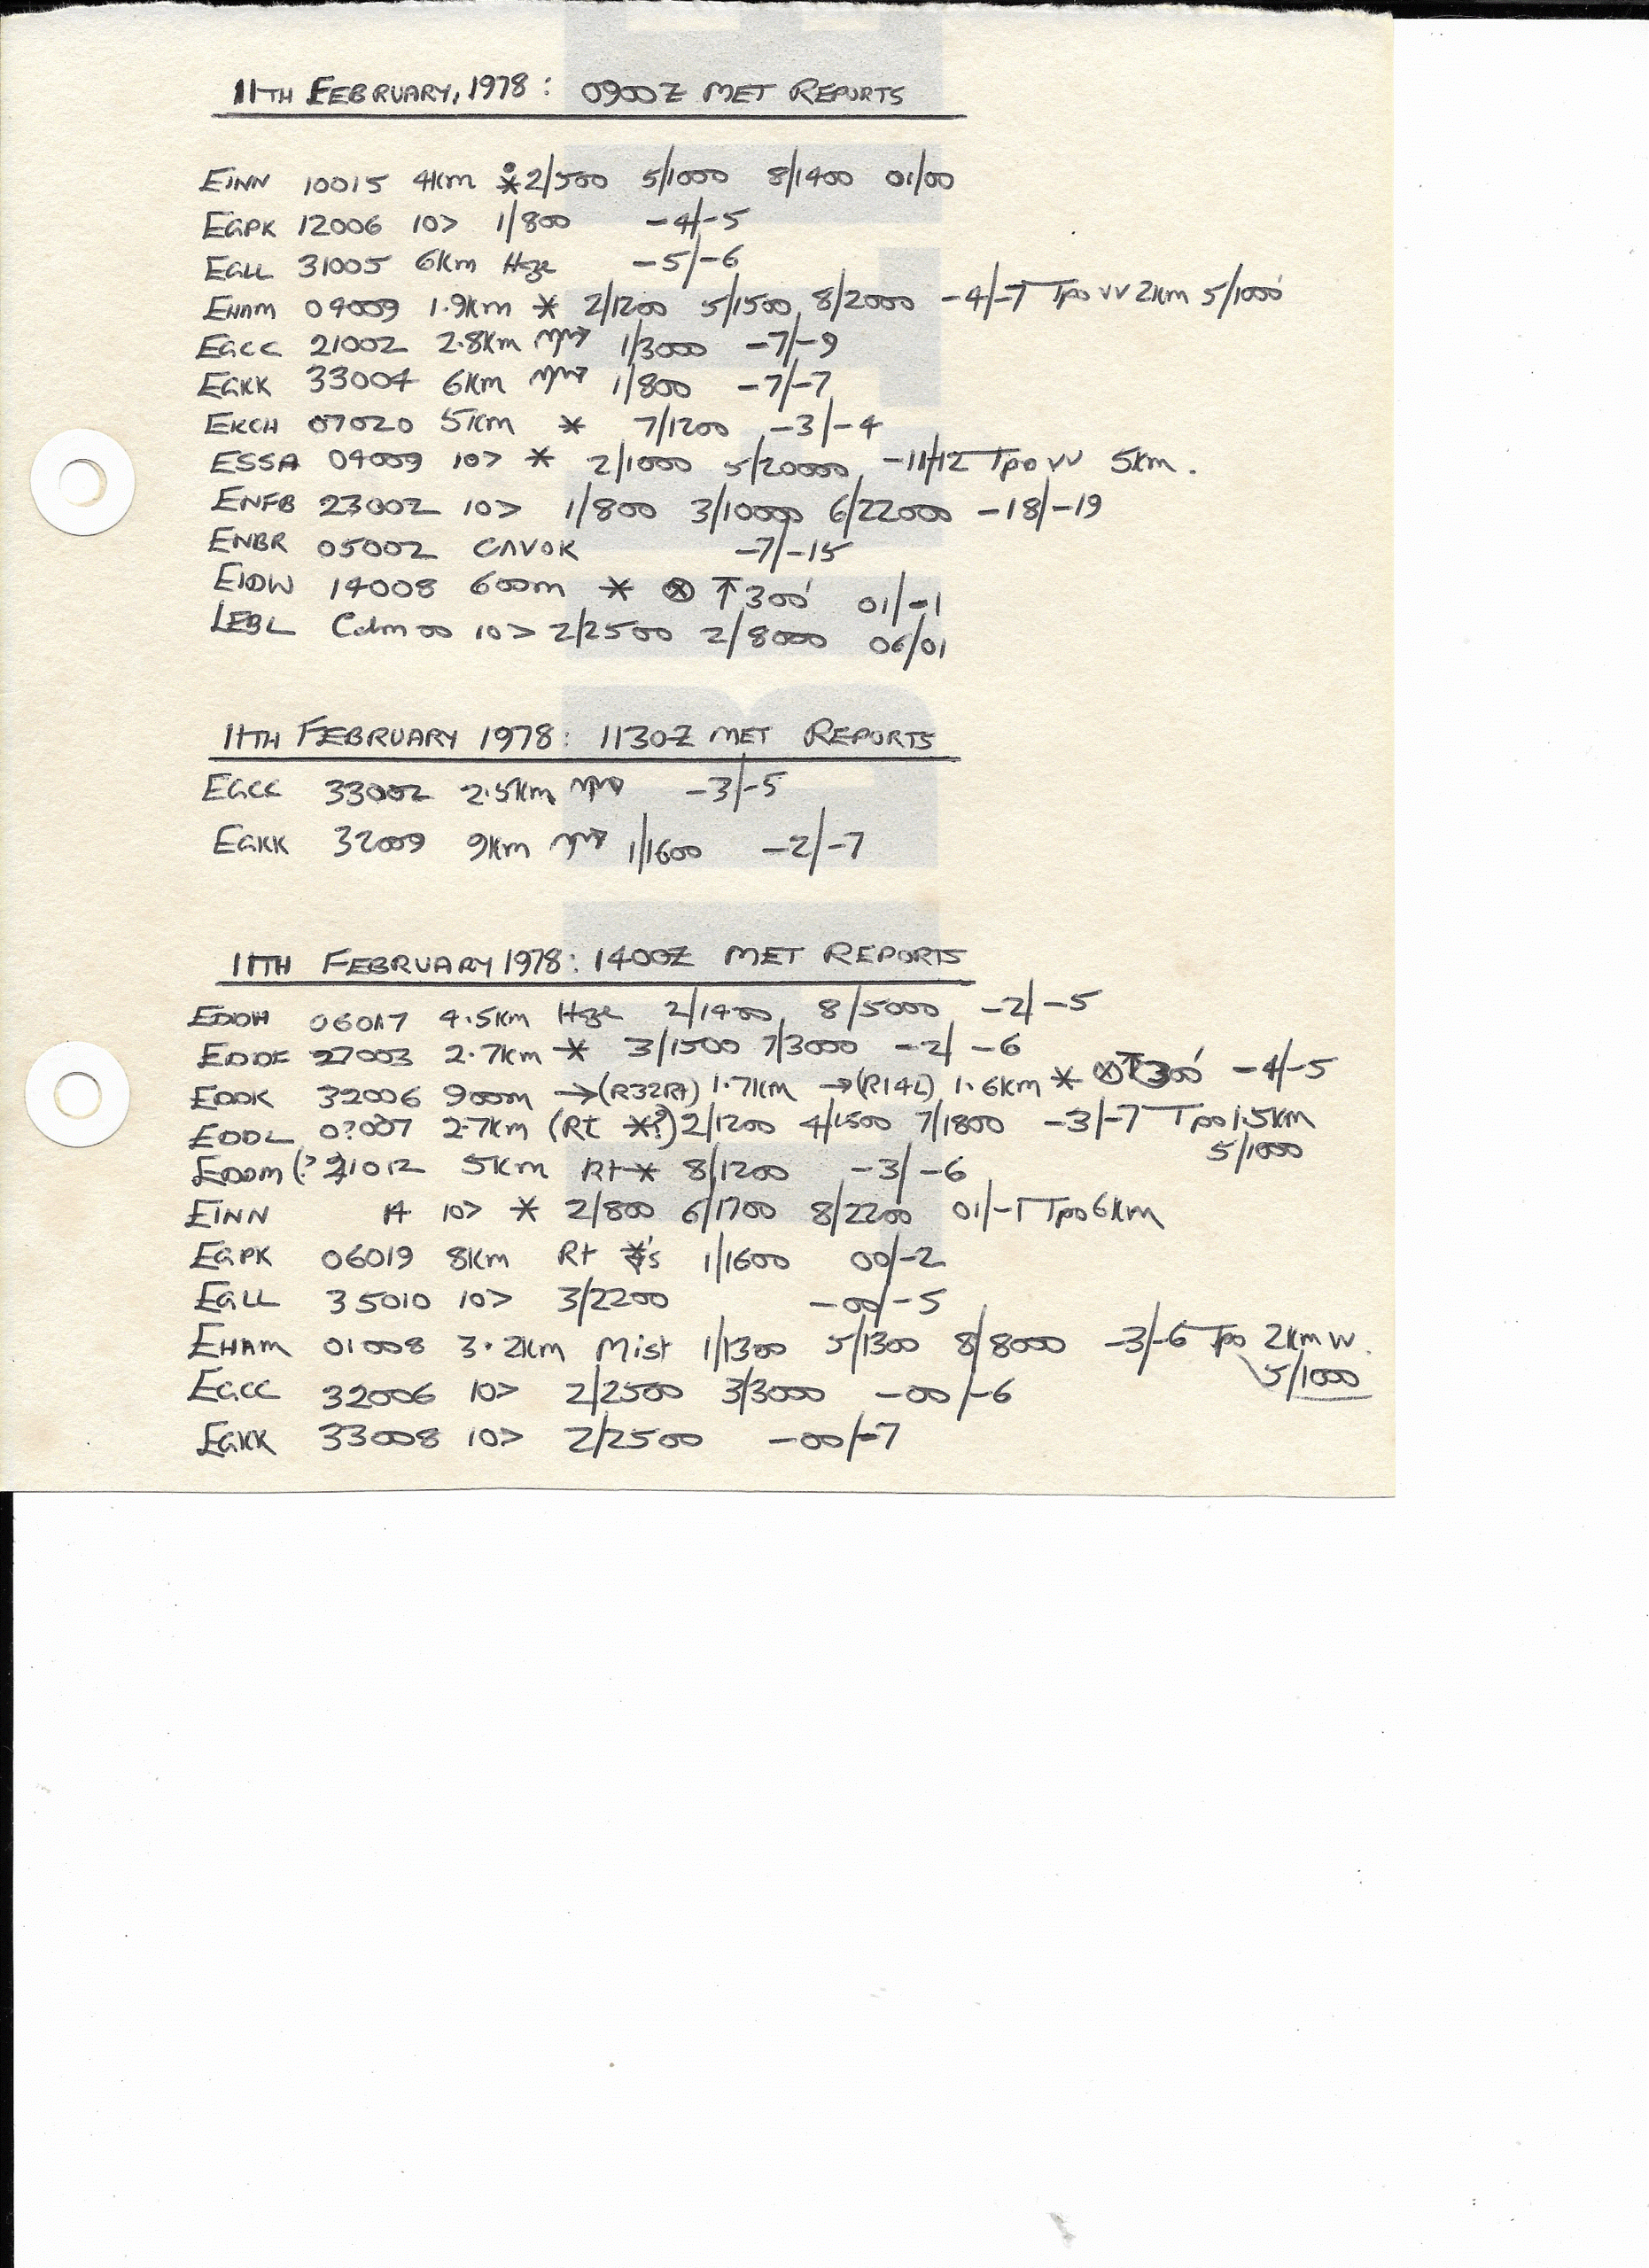 11TH FEBRUARY, 1978: 0900Z MET REPORTS
EINN 10015 4Km * 2/500 5/1000 8/1400 01/00
EGPK 12006 10> 1/800 -4/-5
EGLL 31005 6Km Hze -5/-6
EHAM 04009 1.9Km * 2/1200 5/1500 8/2000 -4/-7 Tpo VV 2Km 5/1000'
EGCC 21002 2.8Km 1/3000 -7/-9
EGKK 33004 6Km 1/800 -7/-7
EKCH 07020 5Km * 7/1200 -3/-4
ESSA 04009 10> * 2/1000 5/20000 -11/12 Tpo VV 5Km.
ENFB 23002 10> 1/800 3/10000 6/22000 -18/-19
ENBR 05002 CAVOK -7/-15
EIDW 14008 600m * ⊗ ↑ 300' 01/-1
LEBL Calm 00 10> 2/2500 2/8000 06/01
11TH FEBRUARY 1978: 1130Z MET REPORTS
EGCC 33002 2.5Km -3/-5
EGKK 32009 9Km 1/1600 -2/-7
11TH FEBRUARY 1978: 1400Z MET REPORTS
EDDH 06017 4.5Km Hze 2/1400 8/5000 -2/-5
EDDF 27003 2.7Km * 3/1500 7/3000 -2/-6
EDDK 32006 900m →(R32Rt) 1.7Km →(R14L) 1.6Km * ⊗↑300' -4/-5
EDDL 0?007 2.7Km (Rt *?) 2/1200 4/1500 7/1800 -3/-7 Tpo 1.5Km
5/1000
EDDM (? 21012 5Km Rt * 8/1200 -3/-6
EINN 14 10> * 2/800 6/1700 8/2200 01/-1 Tpo 6Km
EGPK 06019 8Km Rt *'s 1/1600 00/-2
EGLL 35010 10> 3/2200 -00/-5
EHAM 01008 3.2Km Mist 1/1300 5/1300 8/8000 -3/-6 Tpo 2Km VV.
5/1000
EGCC 32006 10> 2/2500 3/3000 -00/-6
EGKK 33008 10> 2/2500 -00/-7